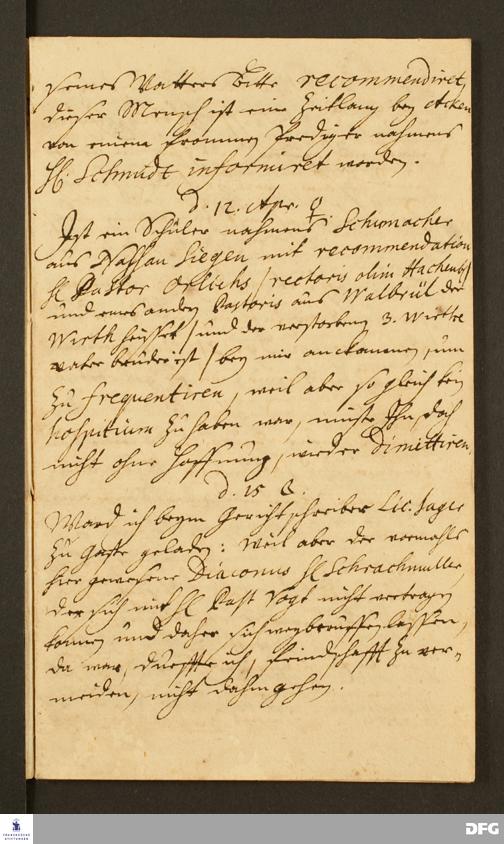 seines Vatters bitte recommendiret,
dieser Mensch ist eine Zeitlang bey Acken
von einem frommen Prediger nahmens
H. Schmidt informiret worden.
d. 12. Apr. ♀
Ist ein Schüler nahmens Schumacher
aus Nassau Siegen mit recommendation
H Pastor Orlichs / rectoris olim Hachenb/
und eines andern Pastoris aus Walbrül der
Wirth heisset / und der verstorbenen 3. Wirthe
vater bruder ist / bey mir ankommen, um
zu frequentiren, weil aber so gleich kein
hospitium zu haben war, muste Ihn, doch
nicht ohne hoffnung, wieder Dimittiren.
d. 15
Ward ich beym Gerichtschreiber Lic. Jager
zu gaste geladen: weil aber der vormahls
hier gewesene Diaconus H Schrachmuller,
der sich mit H Past Vogt nicht vertragen
können und daher sich wegberuffen lassen,
da war, durffte ich, feindschafft zu ver-
meiden, nicht dahin gehen.
FRANCKESCHE
STIFTUNGEN
DFG